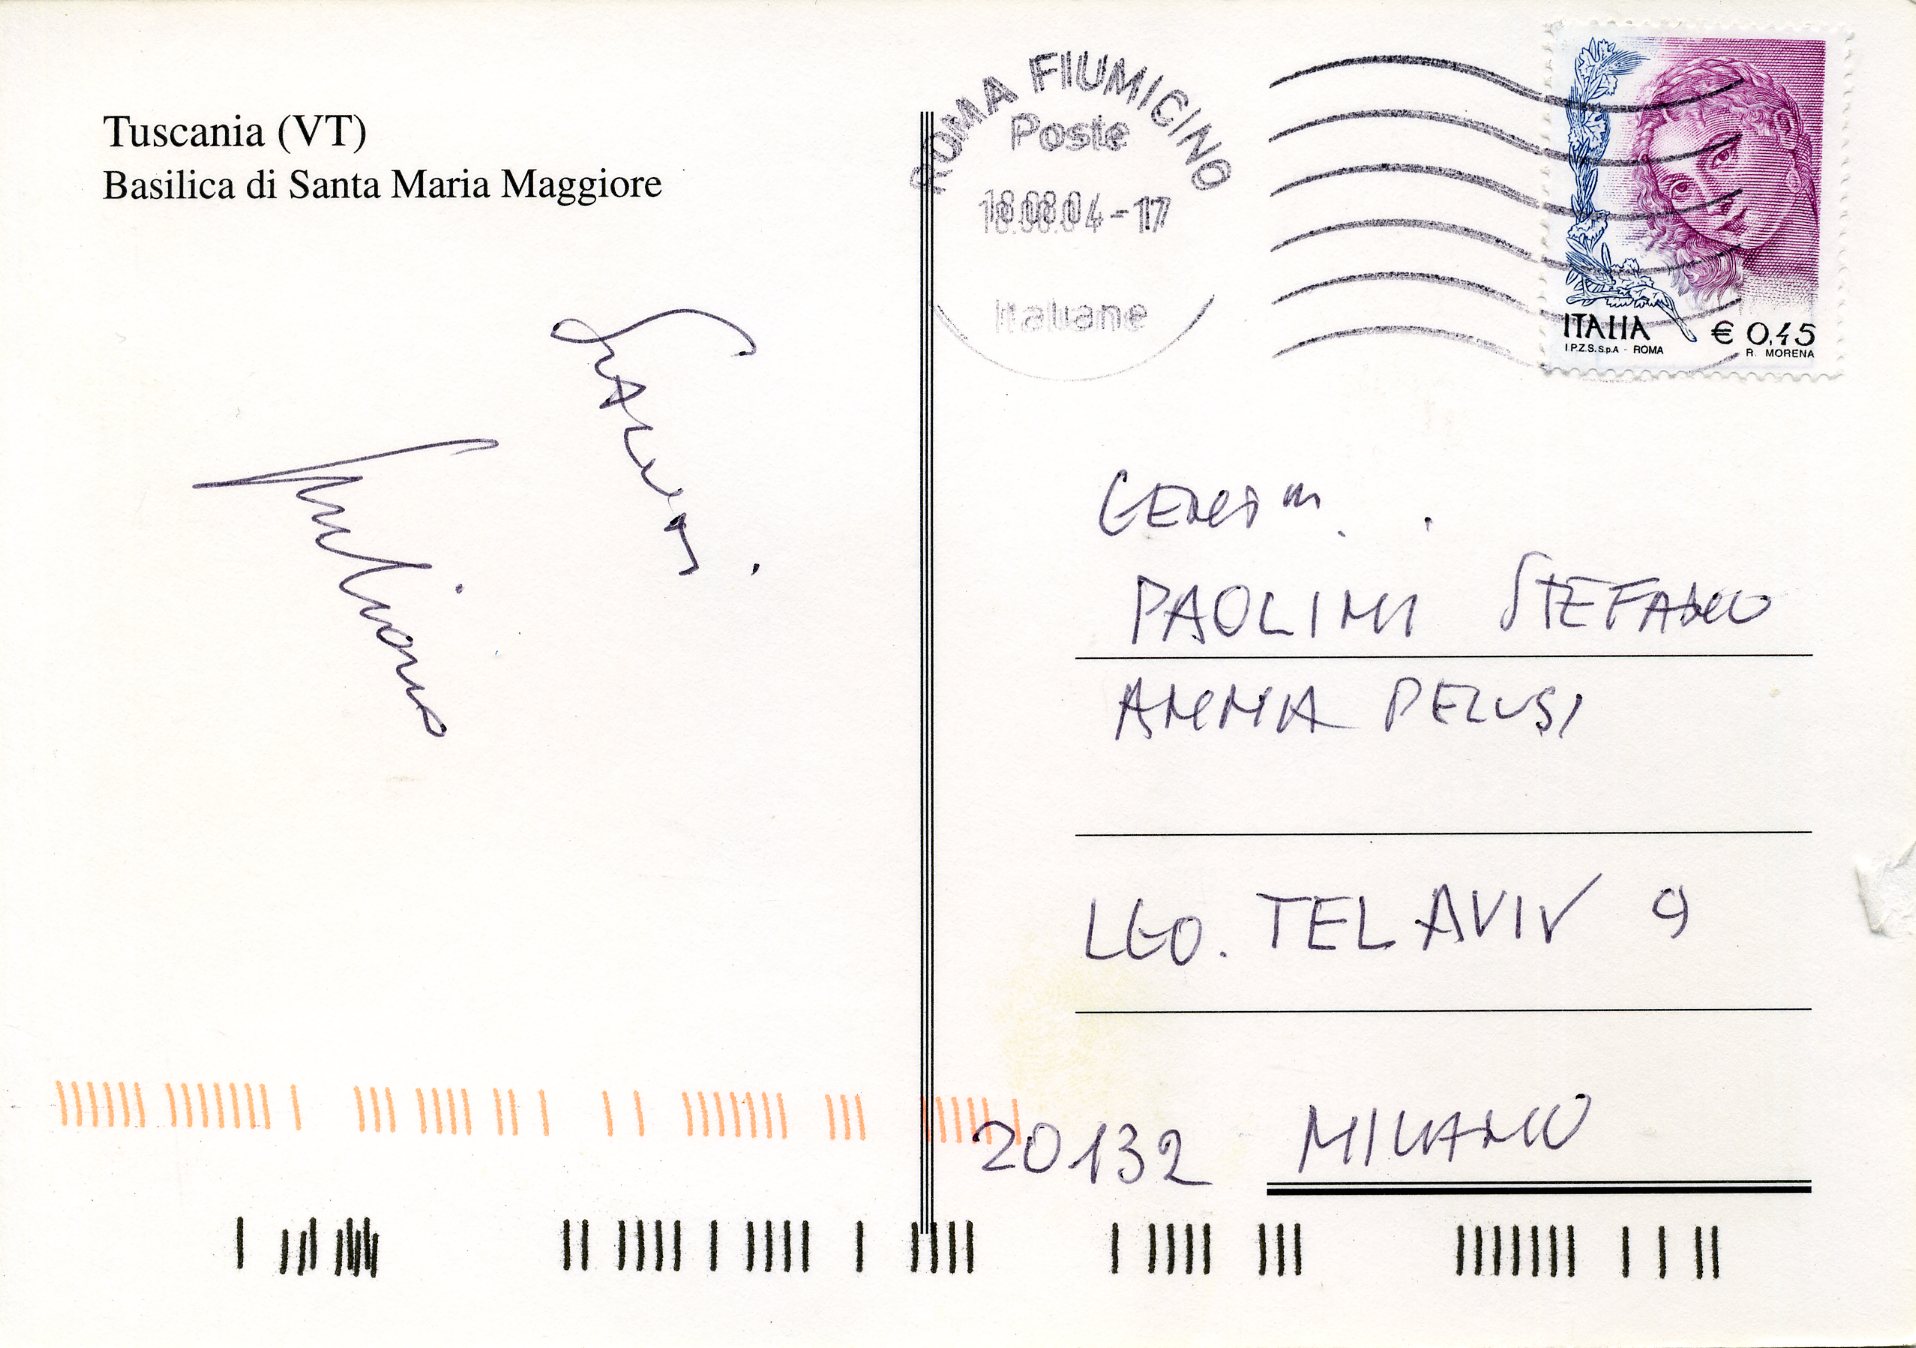 Tuscania (VT)
Basilica di Santa Maria Maggiore
ROMA FIUMICINO
Poste
18.08.04-17
Italiane
ITALIA
€ 0,45
I.P.Z.S. S.p.A. - ROMA
R. MORENA
PAOLINI STEFANO
ANNA PELUSI
LGO. TEL AVIV 9
20132 MILANO